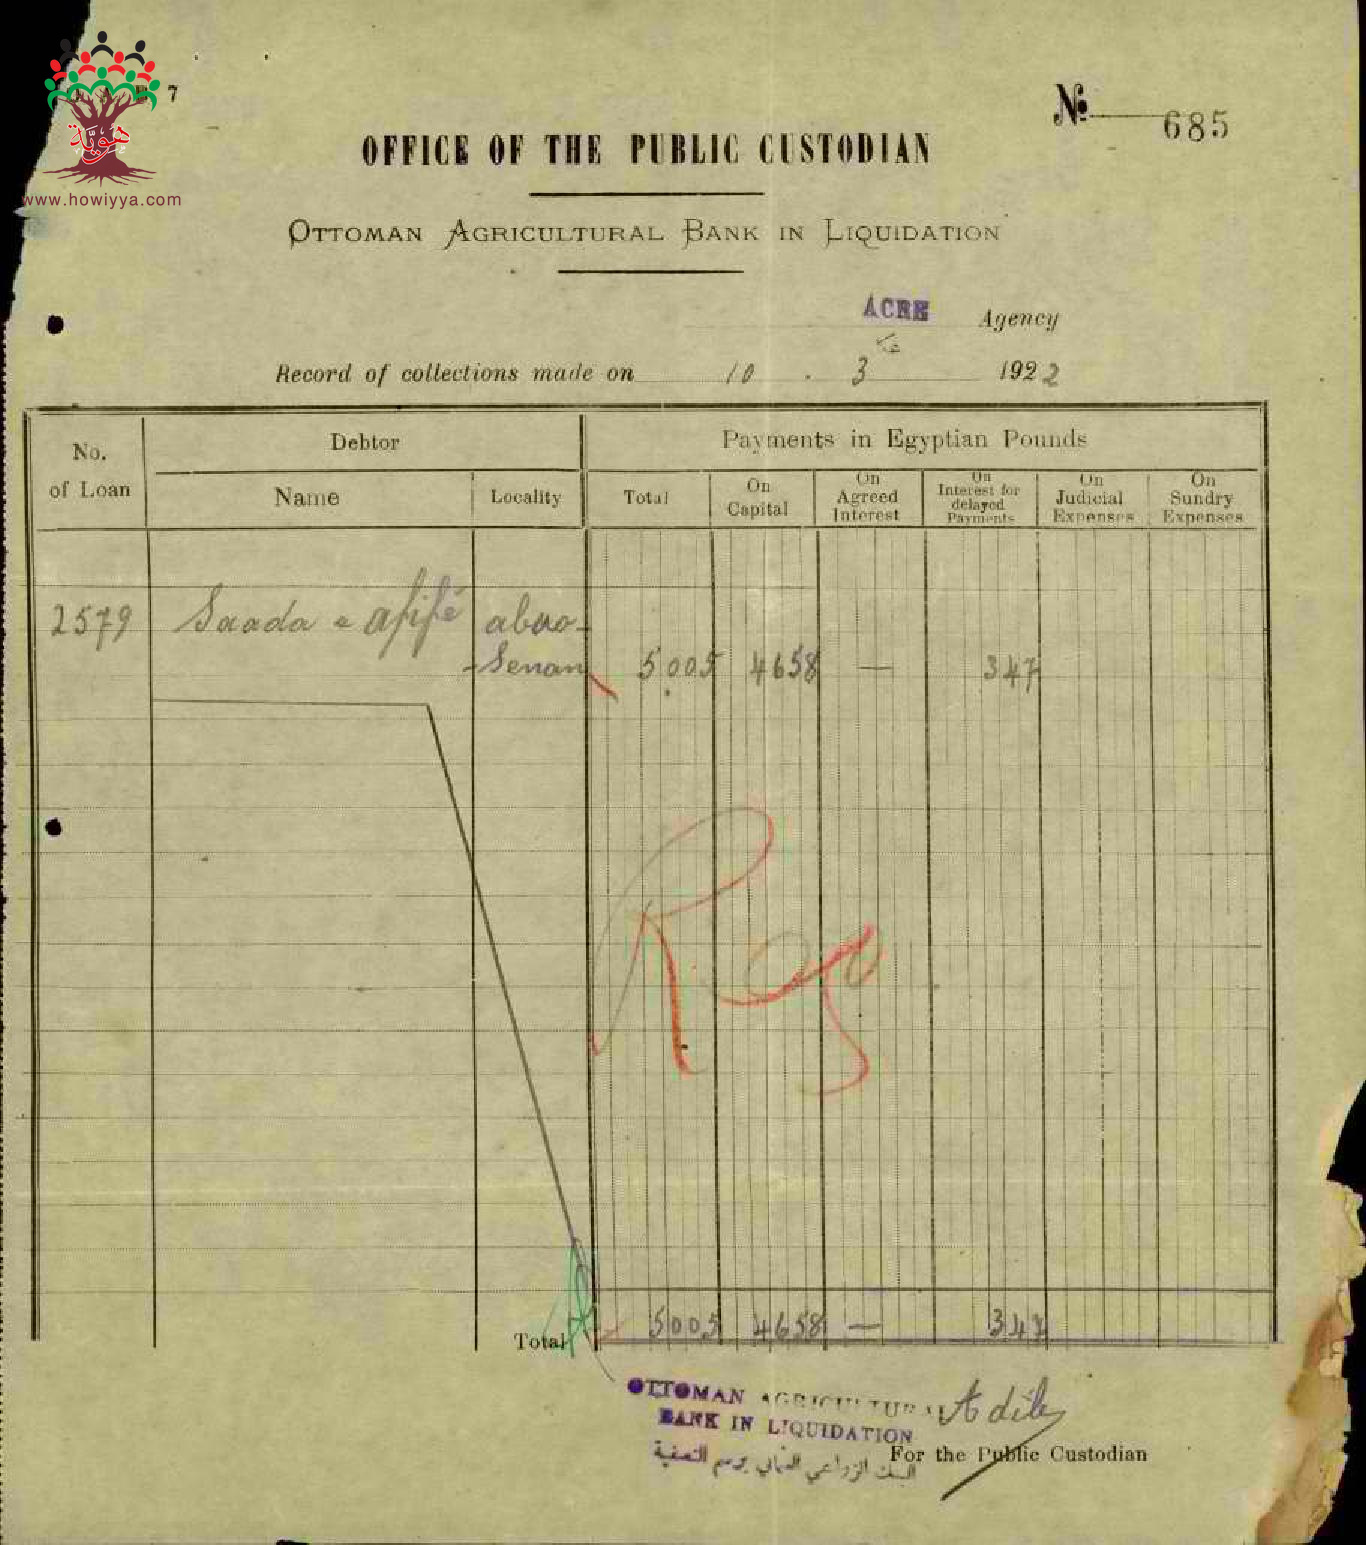 هوية
www.howiyya.com
7
№ 685
OFFICE OF THE PUBLIC CUSTODIAN
OTTOMAN AGRICULTURAL BANK IN LIQUIDATION
ACRE Agency
عكا
Record of collections made on 10 . 3 1922
No. of Loan
Debtor
Payments in Egyptian Pounds
Name
Locality
Total
On Capital
On Agreed Interest
On Interest for delayed Payments
On Judicial Expenses
On Sundry Expenses
2579 Saada e afifé abou-
-Senan 5005 4658 — 347
Reg
Total 5005 4658 — 347
OTTOMAN AGRICULTURAL
BANK IN LIQUIDATION
البنك الزراعي العثماني برسم التصفية
For the Public Custodian